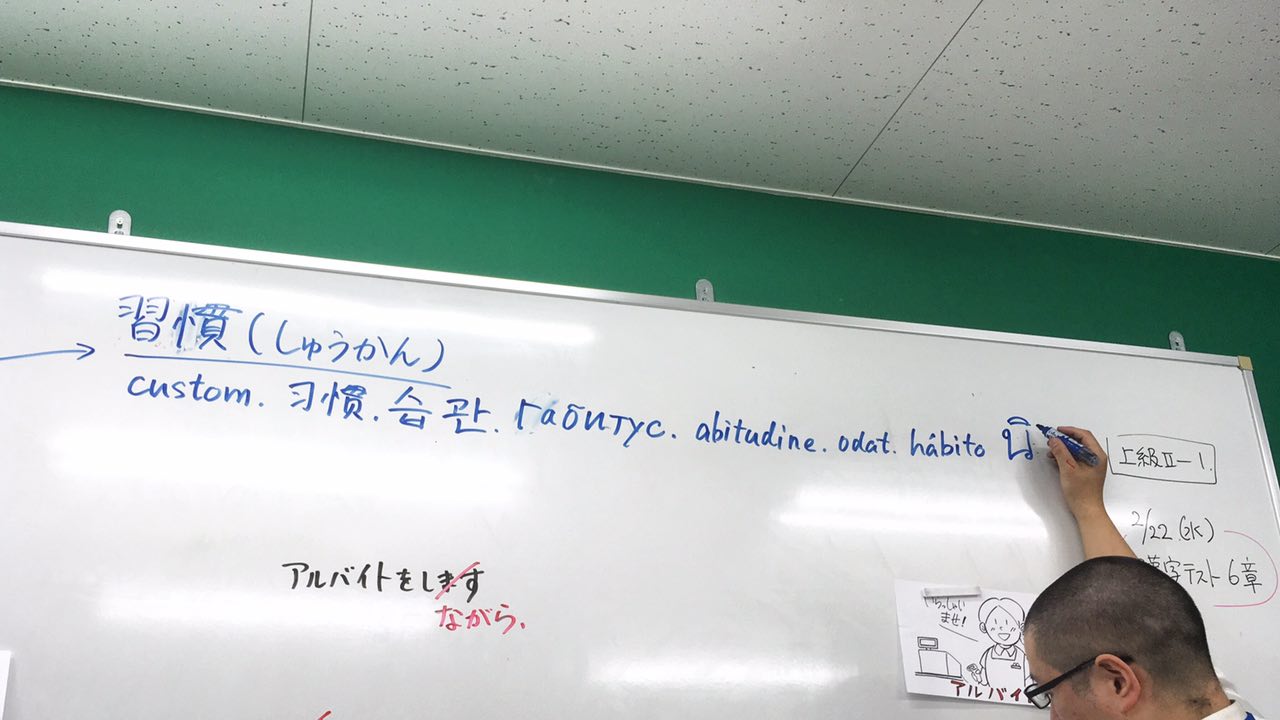 習慣(しゅうかん)
custom. 习惯. 습관. габитус. abitudine. odat. hábito นิ
上級Ⅱ-1.
2/22(水)
漢字テスト6章
アルバイトをします
ながら.
いらっしゃい
ませ!
アルバイ